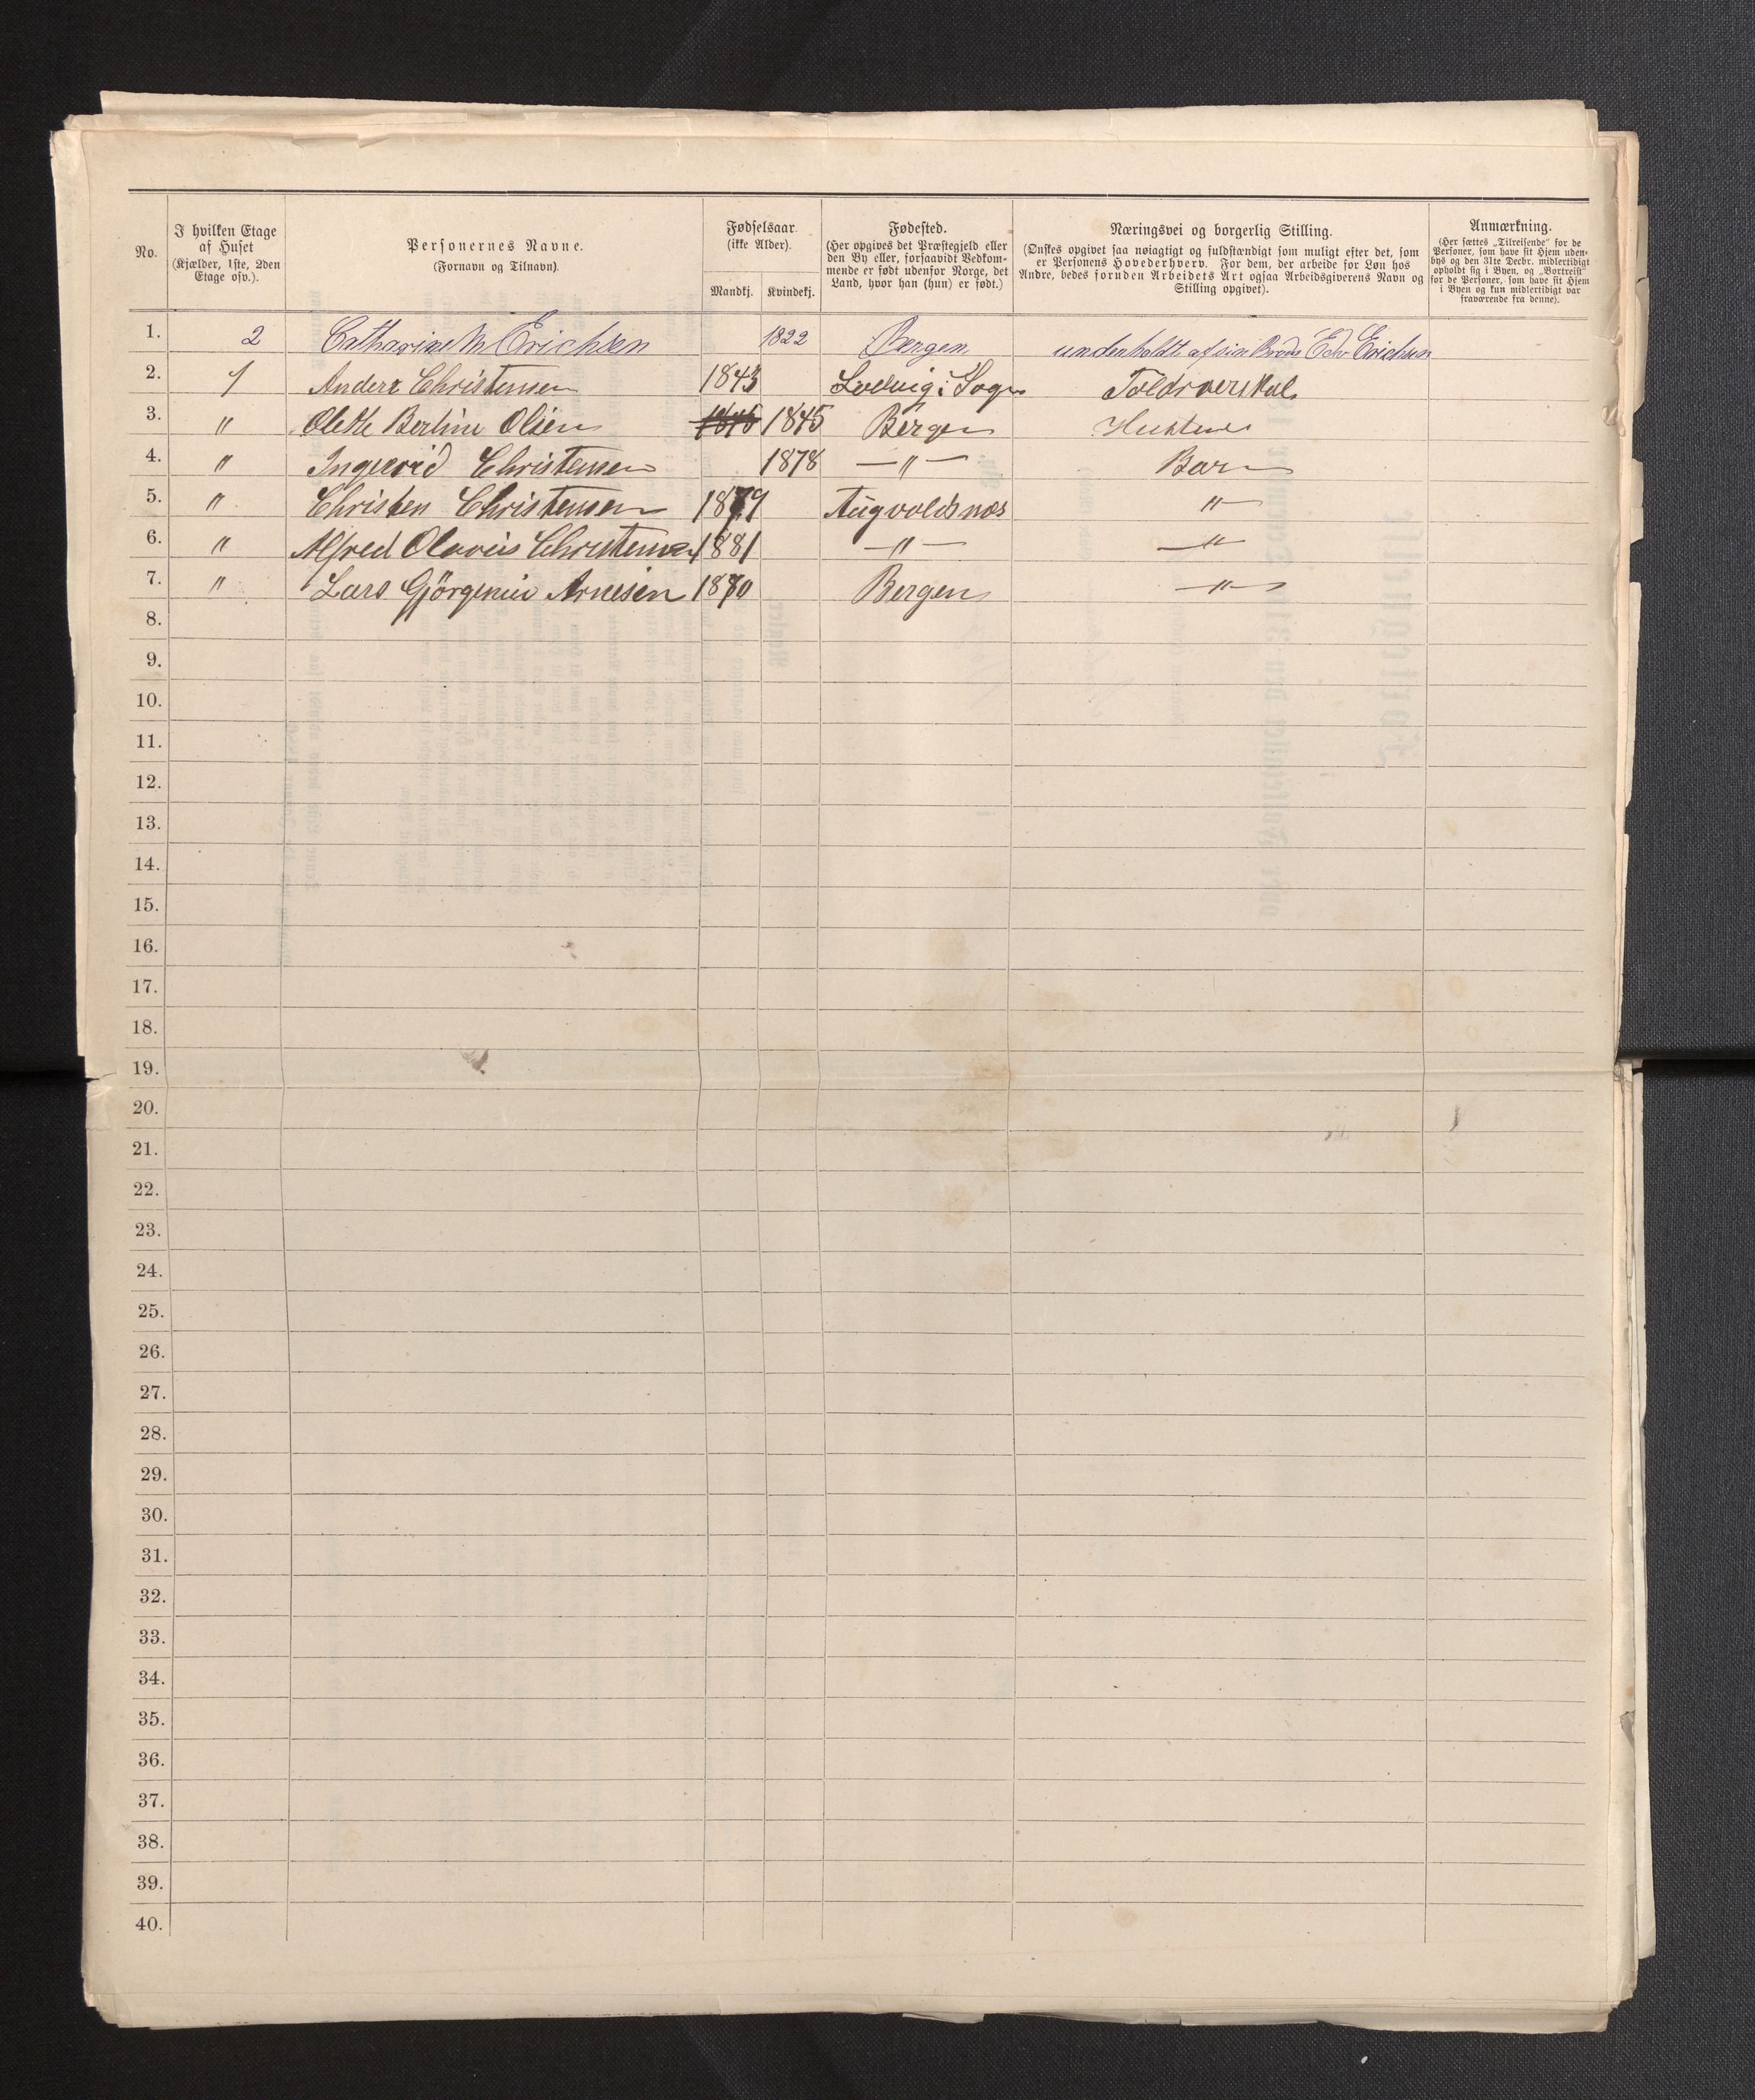 No.
I hvilken Etage af Huset (Kjælder, 1ste, 2den Etage osv.).
Personernes Navne. (Fornavn og Tilnavn).
Fødselsaar (ikke Alder). Mandkj. Kvindekj.
Fødested. (Her opgives det Præstegjeld eller den By eller, forsaavidt Vedkommende er født udenfor Norge, det Land, hvor han (hun) er født.)
Næringsvei og borgerlig Stilling. (Ønskes opgivet saa nøiagtigt og fuldstændigt som muligt efter det, som er Personens Hovederhverv. For dem, der arbeide for Løn hos Andre, bedes foruden Arbeidets Art ogsaa Arbeidsgiverens Navn og Stilling opgivet).
Anmærkning. (Her sættes „Tilreisende“ for de Personer, som have sit Hjem udenbys og den 31te Decbr. midlertidigt opholdt sig i Byen, og „Bortreist“ for de Personer, som have sit Hjem i Byen og kun midlertidigt var fraværende fra denne).
1. 2 Catharine M Erichsen 1822 Bergen underholdt af sin Broder Edv Erichsen
2. 1 Anders Christensen 1843 i Sogn
3. " Olette Berthine Olsen 1846 1845 Bergen
4. " Ingevrid Christensen 1878 —"— Barn
5. " Christen Christensen 1879 Augvoldsnæs "
6. " Alfred Olavus Christensen 1881 —"— —"—
7. " Lars Gjørgenius Arnesen 1870 Bergen —"—
8.
9.
10.
11.
12.
13.
14.
15.
16.
17.
18.
19.
20.
21.
22.
23.
24.
25.
26.
27.
28.
29.
30.
31.
32.
33.
34.
35.
36.
37.
38.
39.
40.